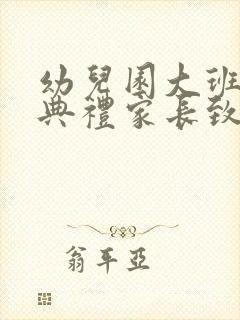 幼兒園大班
典禮家長致
翁平亞